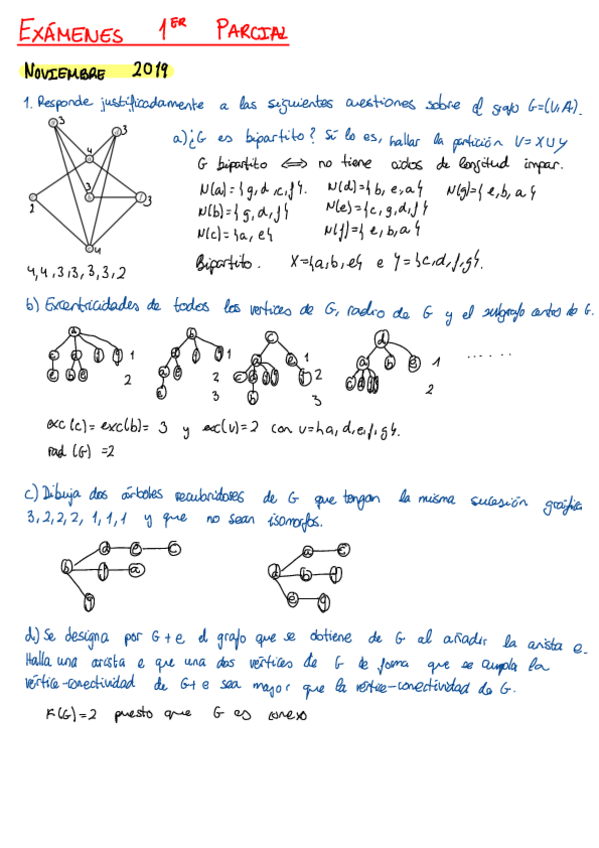 EXÁMENES 1ER PARCIAL
NOVIEMBRE 2019
1. Responde justificadamente a las siguientes cuestiones sobre el grafo G=(V,A).
3
3
4
3
3
2
4
4,4,3,3,3,3,2
a) ¿G es bipartito? Si lo es, hallar la partición V=X∪Y
G bipartito ⟺ no tiene ciclos de longitud impar.
N(a)={g,d,c,f}. N(d)={b,e,a} N(g)={e,b,a}
N(b)={g,d,f} N(e)={c,g,d,f}
N(c)={a,e} N(f)={e,b,a}
Bipartito. X={a,b,e} e Y={c,d,f,g}.
b) Excentricidades de todos los vertices de G, radio de G y el subgrafo centro de G.
a b c d
1 1 1 1 ......
2 2 2 2
3 3
exc(c)=exc(b)=3 y exc(v)=2 con v={a,d,e,f,g}.
rad(G)=2
c) Dibuja dos árboles recubridores de G que tengan la misma sucesión gráfica
3,2,2,2,1,1,1 y que no sean isomorfos.
d e c a e
b f a d b f
g e g
d) Se designa por G+e el grafo que se obtiene de G al añadir la arista e.
Halla una arista e que una dos vértices de G de forma que se cumpla la
vértice-conectividad de G+e sea mayor que la vértice-conectividad de G.
K(G)=2 puesto que G es conexo